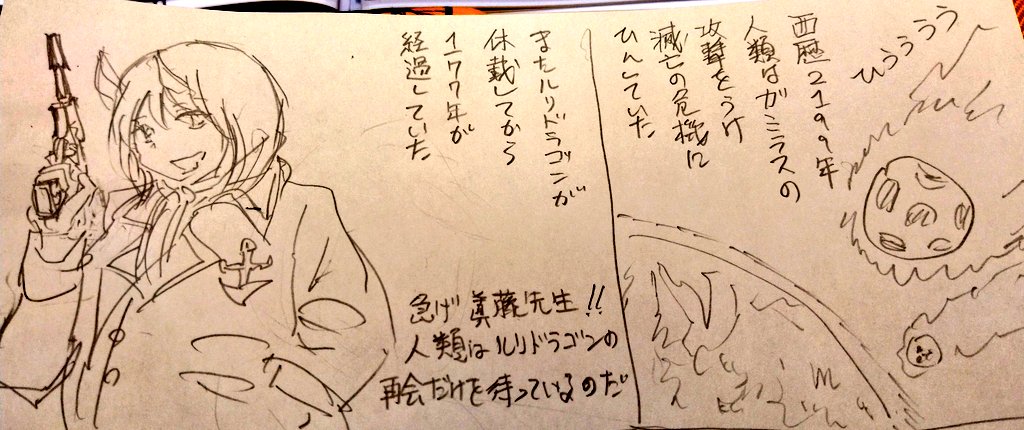 ひぅぅぅぅ
西歴2199年
人類はガミラスの
攻撃をうけ
滅亡の危機に
ひんしていた
またルリドラゴンが
休載してから
177年が
経過していた
急げ眞藤先生!!
人類はルリドラゴンの
再会だけを待っているのだ